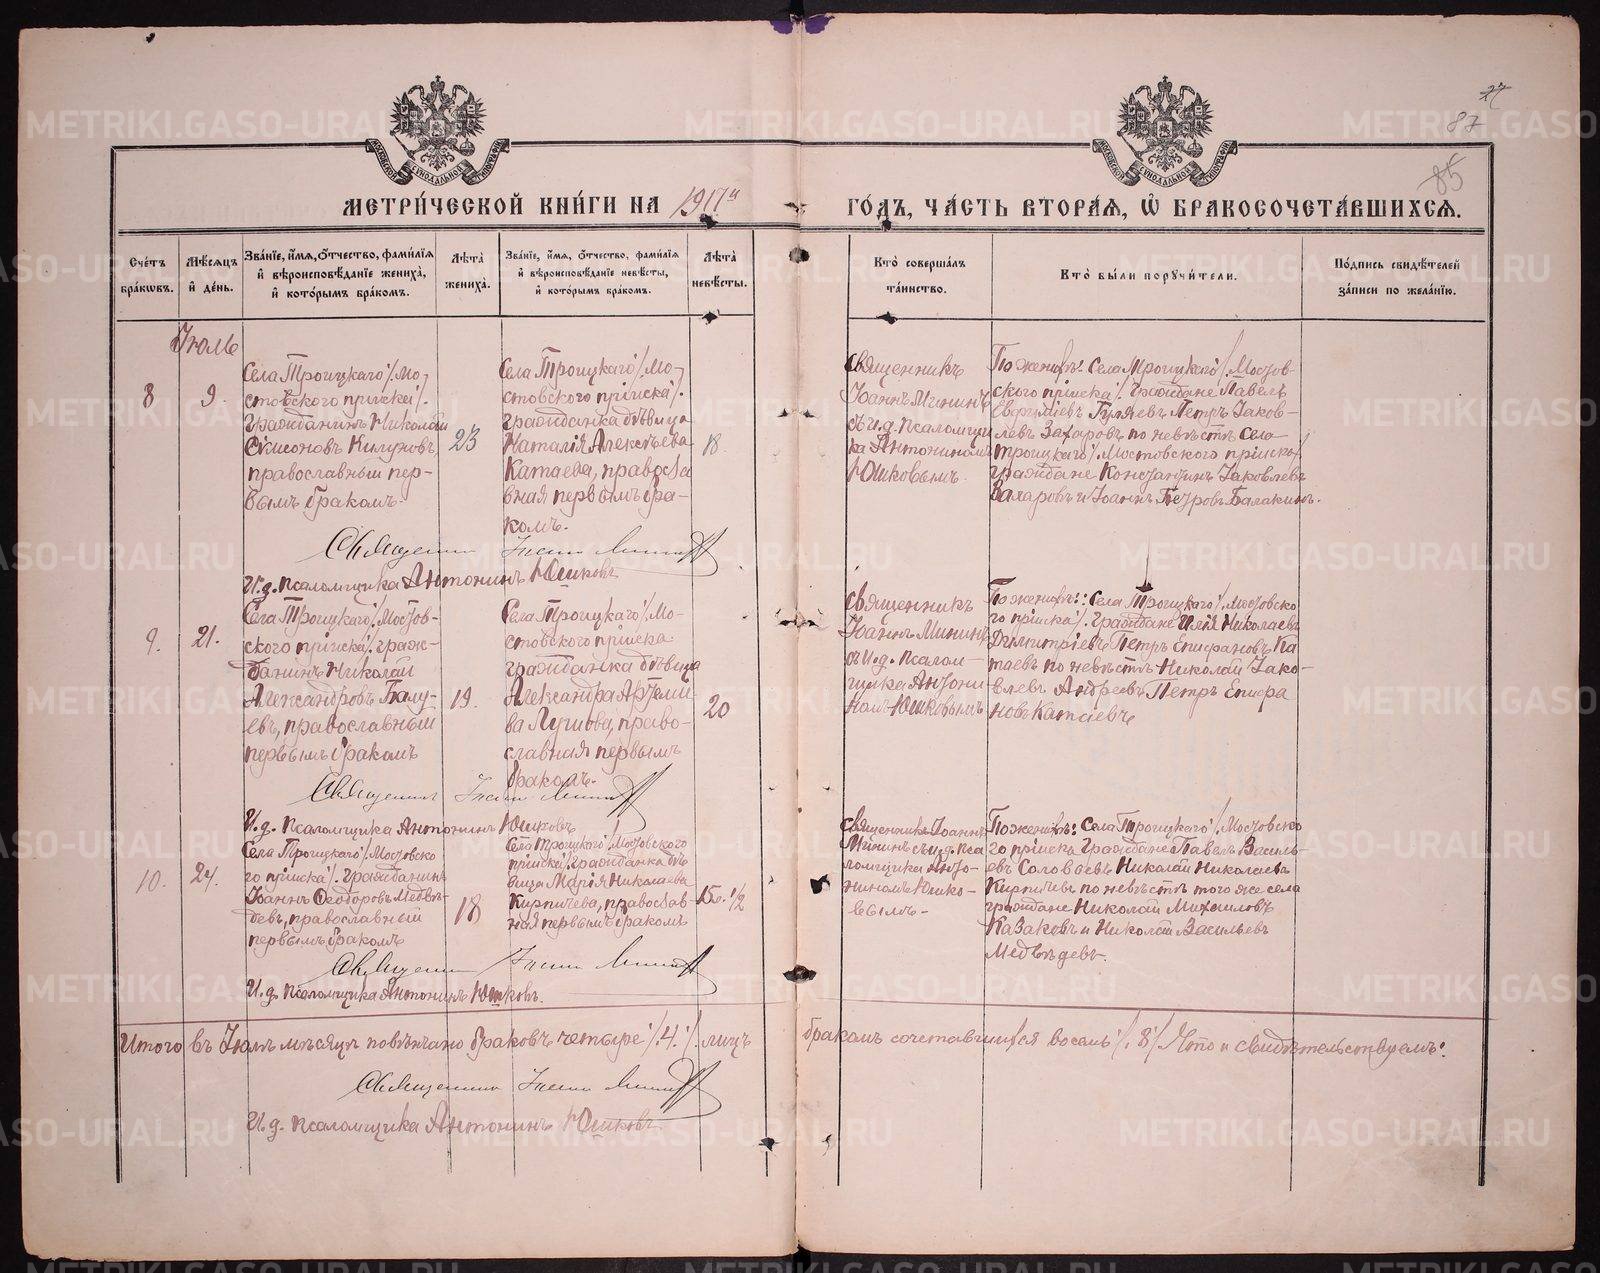 27
87
85
МЕТРИ́ЧЕСКОЙ КНИ́ГИ НА 1917й ГО́ДЪ, ЧА́СТЬ ВТОРА́Я, Ѡ҆ БРАКОСОЧЕТА́ВШИХСЯ.
Счетъ браковъ.
Мѣсяцъ и день.
Званіе, имя, отчество, фамилія
и вѣроисповѣданіе жениха,
и которымъ бракомъ.
Лѣта жениха.
Званіе, имя, отчество, фамилія
и вѣроисповѣданіе невѣсты,
и которымъ бракомъ.
Лѣта невѣсты.
Кто совершалъ
таинство.
Кто были поручители.
Подпись свидѣтелей
записи по желанію.
Іюль
8
9.
Села Троицкаго /Мо-
стовского пріиска/.
гражданинъ Николай
Сѵмеоновъ
православный пер-
вымъ бракомъ.
23
Села Троицкаго /Мо-
стовского пріиска/.
гражданка дѣвица
Наталія Алексѣева
Катаева, правосла
вная первымъ бра-
комъ.
18.
Священникъ
Іоаннъ Мининъ
съ и.д. псаломщи
ка Антониномъ
Юшковымъ.
По женихѣ: Села Троицкаго /Мостов-
ского пріиска/. граждане Павелъ
Евѳиміевъ Гуляевъ Петръ Іаков-
левъ Захаровъ по невѣстѣ Села
Троицкаго /Мостовского пріиска/
граждане Константинъ Іаковлевъ
Захаровъ и Іоаннъ Петровъ Балакинъ.
Священникъ Іоаннъ Мининъ
И.д. псаломщика Антонинъ Юшковъ
9.
21.
Села Троицкаго /Мостов-
ского пріиска/. граж-
данинъ Николай
Александровъ
евъ, православный
первымъ бракомъ
19.
Села Троицкаго /Мо-
стовского пріиска
гражданка дѣвица
Александра Артеміе
ва Лушова, право-
славная первымъ
бракомъ.
20
Священникъ
Іоаннъ Мининъ
съ и.д. псалом-
щика Антони
номъ Юшковымъ
По женихѣ: Села Троицкаго /Мостовско
го пріиска/. граждане Илія Николаевъ
Димитріевъ Петръ Епифановъ Ка
таевъ по невѣстѣ Николай Іако-
влевъ Андреевъ Петръ Епифа
новъ Катаевъ
Священникъ Іоаннъ Мининъ
И.д. псаломщика Антонинъ Юшковъ
10.
24.
Села Троицкаго /Мостовско
го пріиска/. гражданинъ
Іоаннъ Ѳеодоровъ Медвѣ-
девъ, православный
первымъ бракомъ
18
Села Троицкаго /Мостовского
пріиска/. гражданка дѣ
вица Марія Николаева
Кирпичева, православ-
ная первымъ бракомъ
15. 1/2
Священникъ Іоаннъ
Мининъ съ и.д. пса
ломщика Анто-
ниномъ Юшко-
вымъ-
По женихѣ: Села Троицкаго /Мостовско
го пріиска граждане Павелъ Василь-
евъ Соловьевъ Николай Николаевъ
Кирпичевъ по невѣстѣ того же села
граждане Николай Михаиловъ
Казаковъ и Николай Васильевъ
Медвѣдевъ.
Священникъ Іоаннъ Мининъ
И.д. псаломщика Антонинъ Юшковъ.
Итого въ Іюлѣ мѣсяцѣ повѣнчано браковъ четыре /.4./ лицъ бракомъ сочетавшихся восемь /.8/ Что и свидѣтельствуемъ:
Священникъ Іоаннъ Мининъ
И.д. псаломщика Антонинъ Юшковъ
METRIKI.GASO-URAL.RU